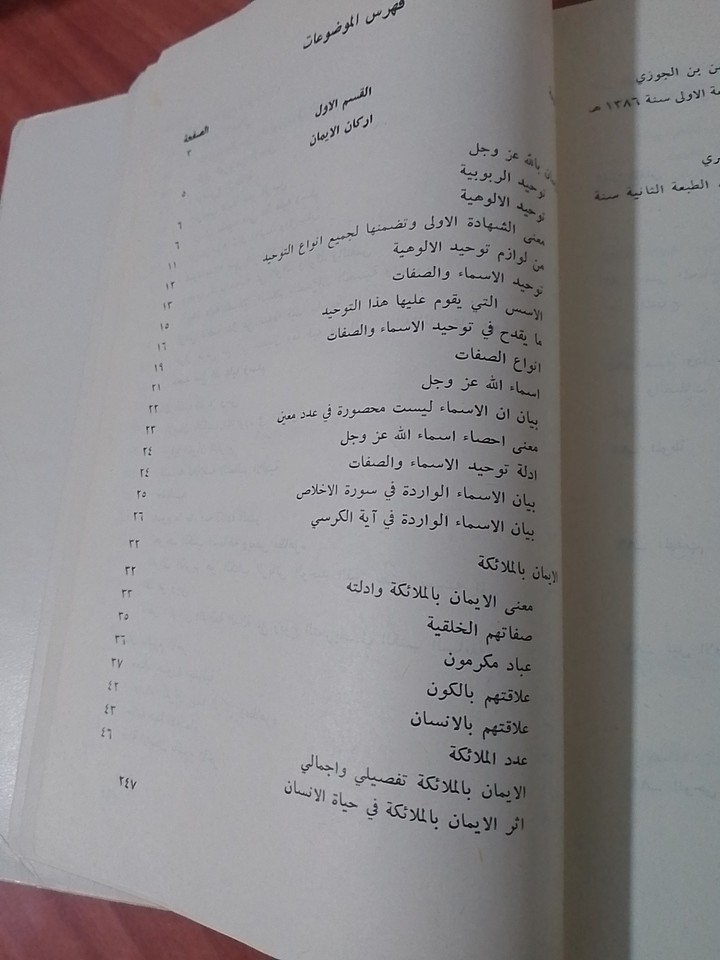 فهرس الموضوعات
القسم الاول
اركان الايمان
الصفحة
بالله عز وجل
توحيد الربوبية
توحيد الالوهية
معنى الشهادة الاولى وتضمنها لجميع انواع التوحيد
من لوازم توحيد الالوهية
توحيد الاسماء والصفات
الاسس التي يقوم عليها هذا التوحيد
ما يقدح في توحيد الاسماء والصفات
انواع الصفات
اسماء الله عز وجل
بيان ان الاسماء ليست محصورة في عدد معين
معنى احصاء اسماء الله عز وجل
ادلة توحيد الاسماء والصفات
بيان الاسماء الواردة في سورة الاخلاص
بيان الاسماء الواردة في آية الكرسي
الايمان بالملائكة
معنى الايمان بالملائكة وادلته
صفاتهم الخلقية
عباد مكرمون
علاقتهم بالكون
علاقتهم بالانسان
عدد الملائكة
الايمان بالملائكة تفصيلي واجمالي
اثر الايمان بالملائكة في حياة الانسان
٣
٥
٦
٦
١١
١٢
١٣
١٥
١٦
١٩
٢١
٢٢
٢٣
٢٤
٢٤
٢٥
٢٦
٣٢
٣٢
٣٣
٣٥
٣٦
٣٧
٤٢
٤٣
٤٦
٢٤٧
بن الجوزي
الاولى سنة ١٣٨٦ هـ
الطبعة الثانية سنة